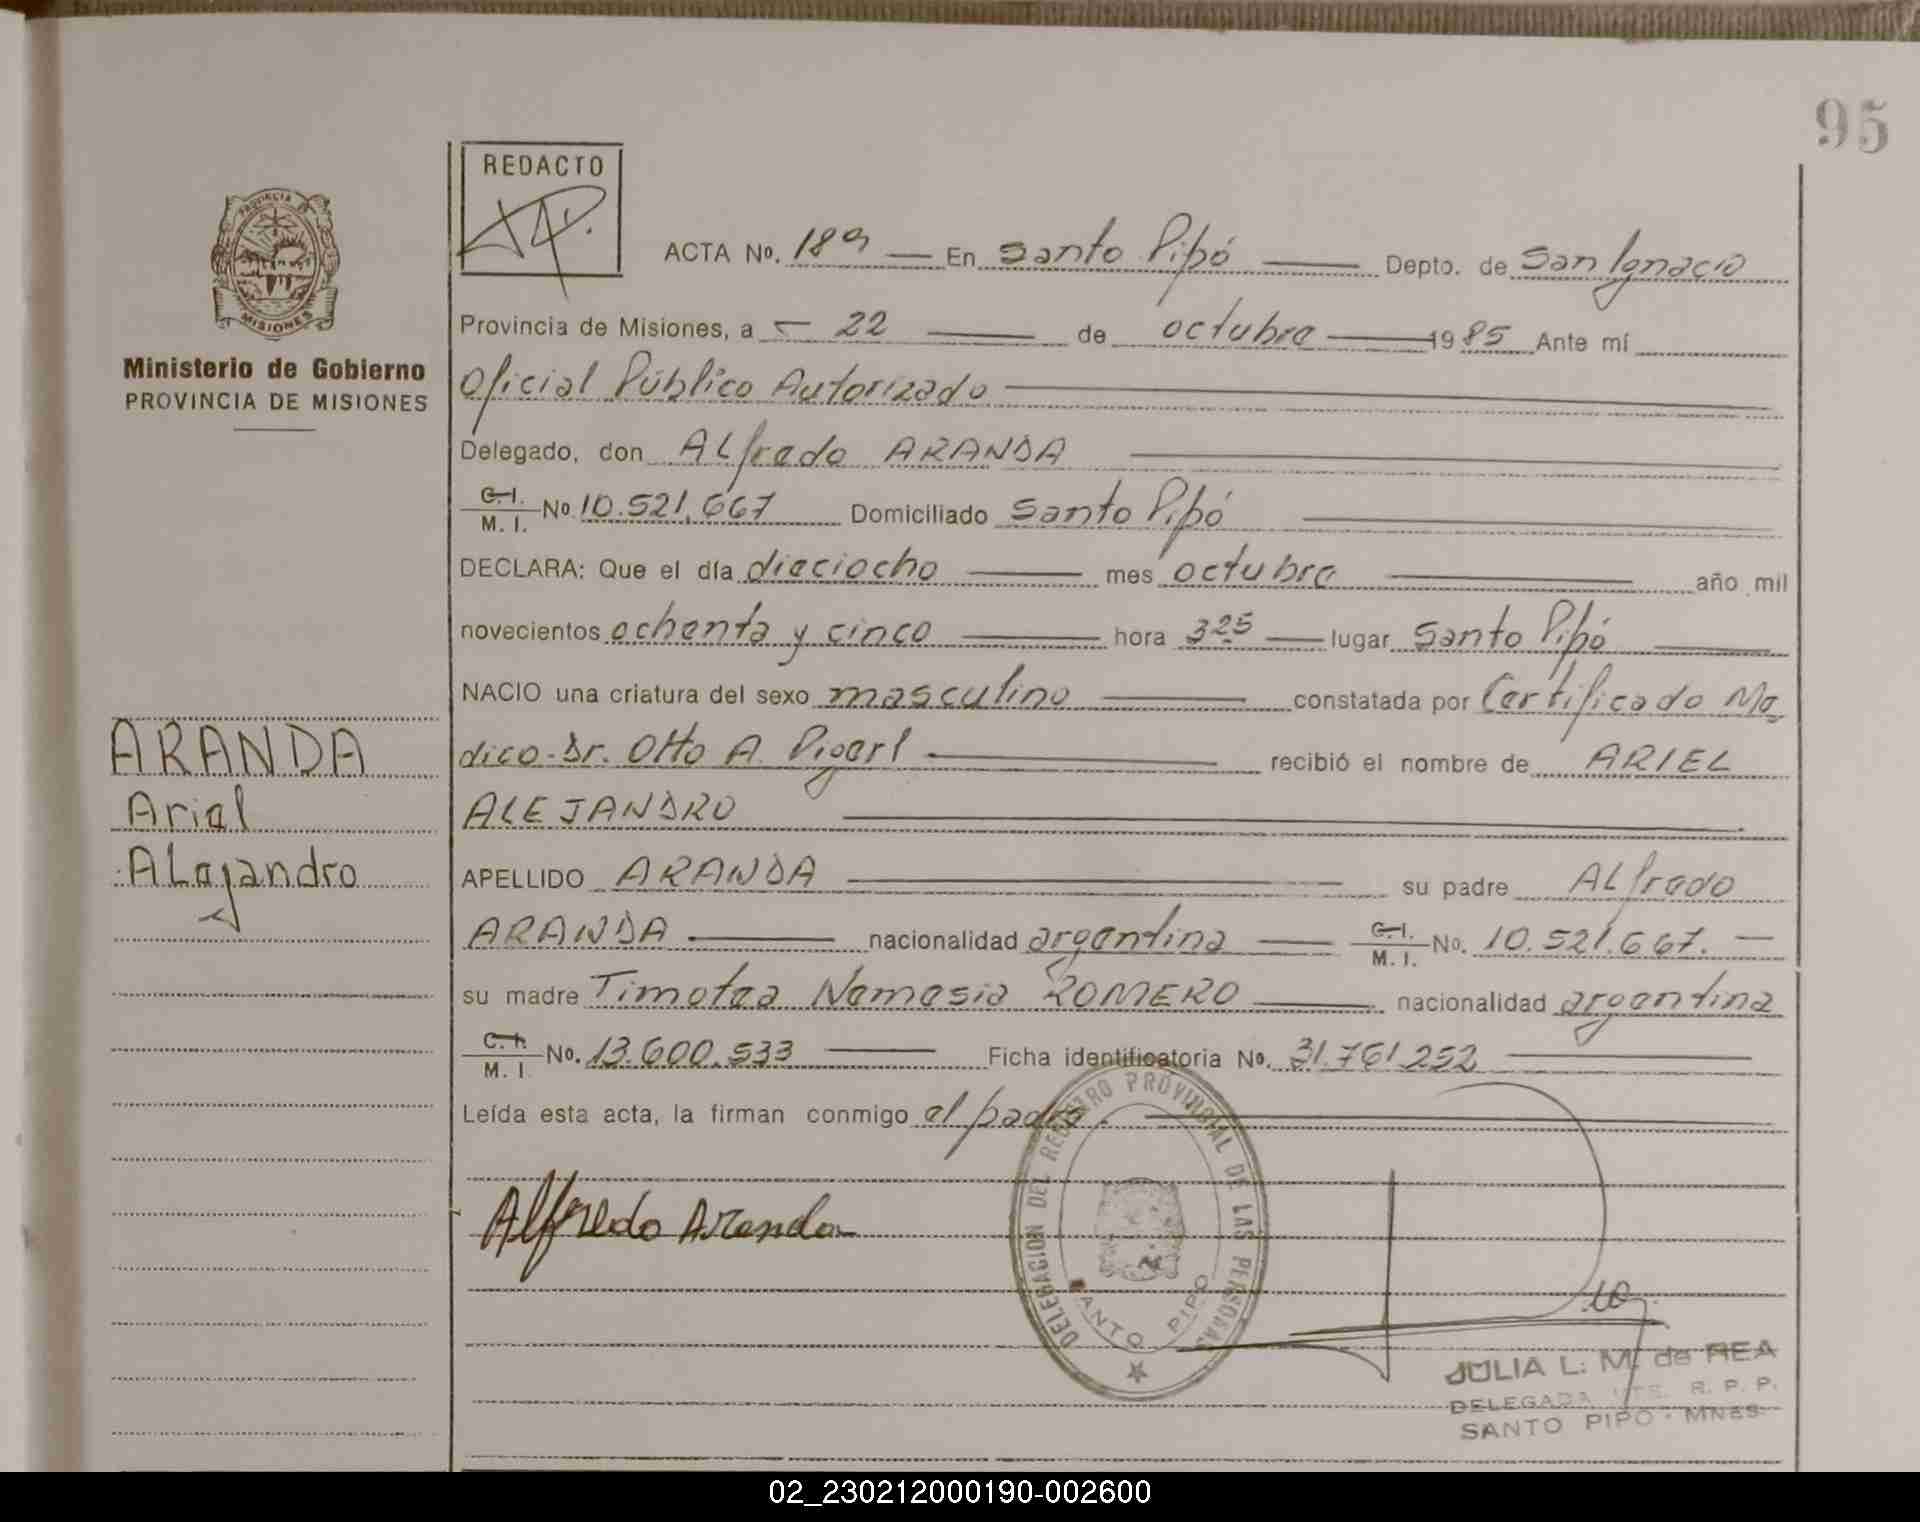 95
REDACTO
PROVINCIA DE
MISIONES
Ministerio de Gobierno
PROVINCIA DE MISIONES
ACTA No. 189 En Santo Pipó Depto. de San Ignacio
Provincia de Misiones, a 22 de octubre 1985 Ante mí
Oficial Público Autorizado
Delegado, don Alfredo ARANDA
C. I. / M. I. No 10.521.667 Domiciliado Santo Pipó
DECLARA: Que el día dieciocho mes octubre año mil
novecientos ochenta y cinco hora 3 25 lugar Santo Pipó
NACIO una criatura del sexo masculino constatada por Certificado Me
dico-Dr. Otto A. Pigerl recibió el nombre de ARIEL
ALEJANDRO
APELLIDO ARANDA su padre Alfredo
ARANDA nacionalidad argentina C. I. / M. I. No. 10.521.667.
su madre Timotea Nemesia ROMERO nacionalidad argentina
C. I. / M. I. No. 13.600.533 Ficha identificatoria No. 31.761.252
Leída esta acta, la firman conmigo el padre.
ARANDA
Ariel
Alejandro
Alfredo Aranda
DELEGACION DEL REGISTRO PROVINCIAL DE LAS PERSONAS
SANTO PIPO
JULIA L. M. de REA
DELEGADA R. P. P.
SANTO PIPO - MNES.
02_230212000190-002600